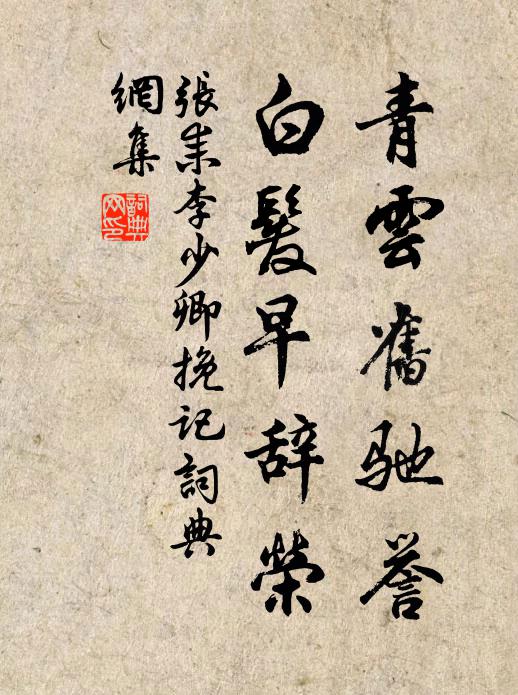 青雲舊馳誉
白髮早辞榮
張耒李少卿挽記詞典
網集
詞典
网印